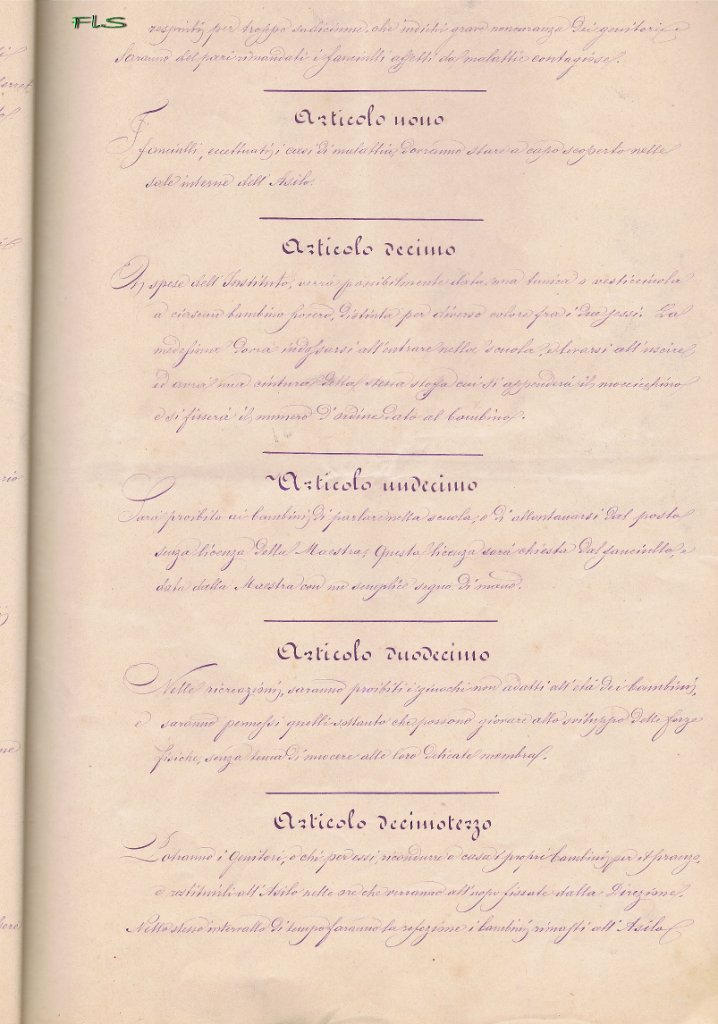 FLS
respinti, per troppo sudiciume, che indichi grave noncuranza dei genitori; e
Saranno del pari rimandati i fanciulli affetti da malattie contagiose.
Articolo nono
I fanciulli, eccettuati i casi di malattia, dovranno stare a capo scoperto nelle
sale interne dell'Asilo.
Articolo decimo
A spese dell'Instituto, verrà possibilmente data una tunica o vesticciuola
a ciascun bambino povero, distinta per diverso colore fra i due sessi. La
medesima dovrà indossarsi all'entrare nella scuola, e levarsi all'uscire
ed avrà una cintura della stessa stoffa cui si appenderà il moccicchino
e si fisserà il numero d'ordine dato al bambino.
Articolo undecimo
Sarà proibito ai bambini di parlare nella scuola, e di allontanarsi dal posto
senza licenza della Maestra; Questa licenza sarà chiesta dal fanciullo, e
data dalla Maestra con un semplice segno di mano.
Articolo duodecimo
Nelle ricreazioni, saranno proibiti i giuochi non adatti all'età dei bambini,
e saranno permessi quelli soltanto che possono giovare allo sviluppo delle forze
fisiche, senza tema di nuocere alle loro delicate membra.
Articolo decimoterzo
Potranno i Genitori, o chi per essi, ricondurre a casa i propri bambini per il pranzo,
e restituirli all'Asilo nelle ore che verranno all'uopo fissate dalla Direzione.
Nello stesso intervallo di tempo faranno la refezione i bambini rimasti all'Asilo